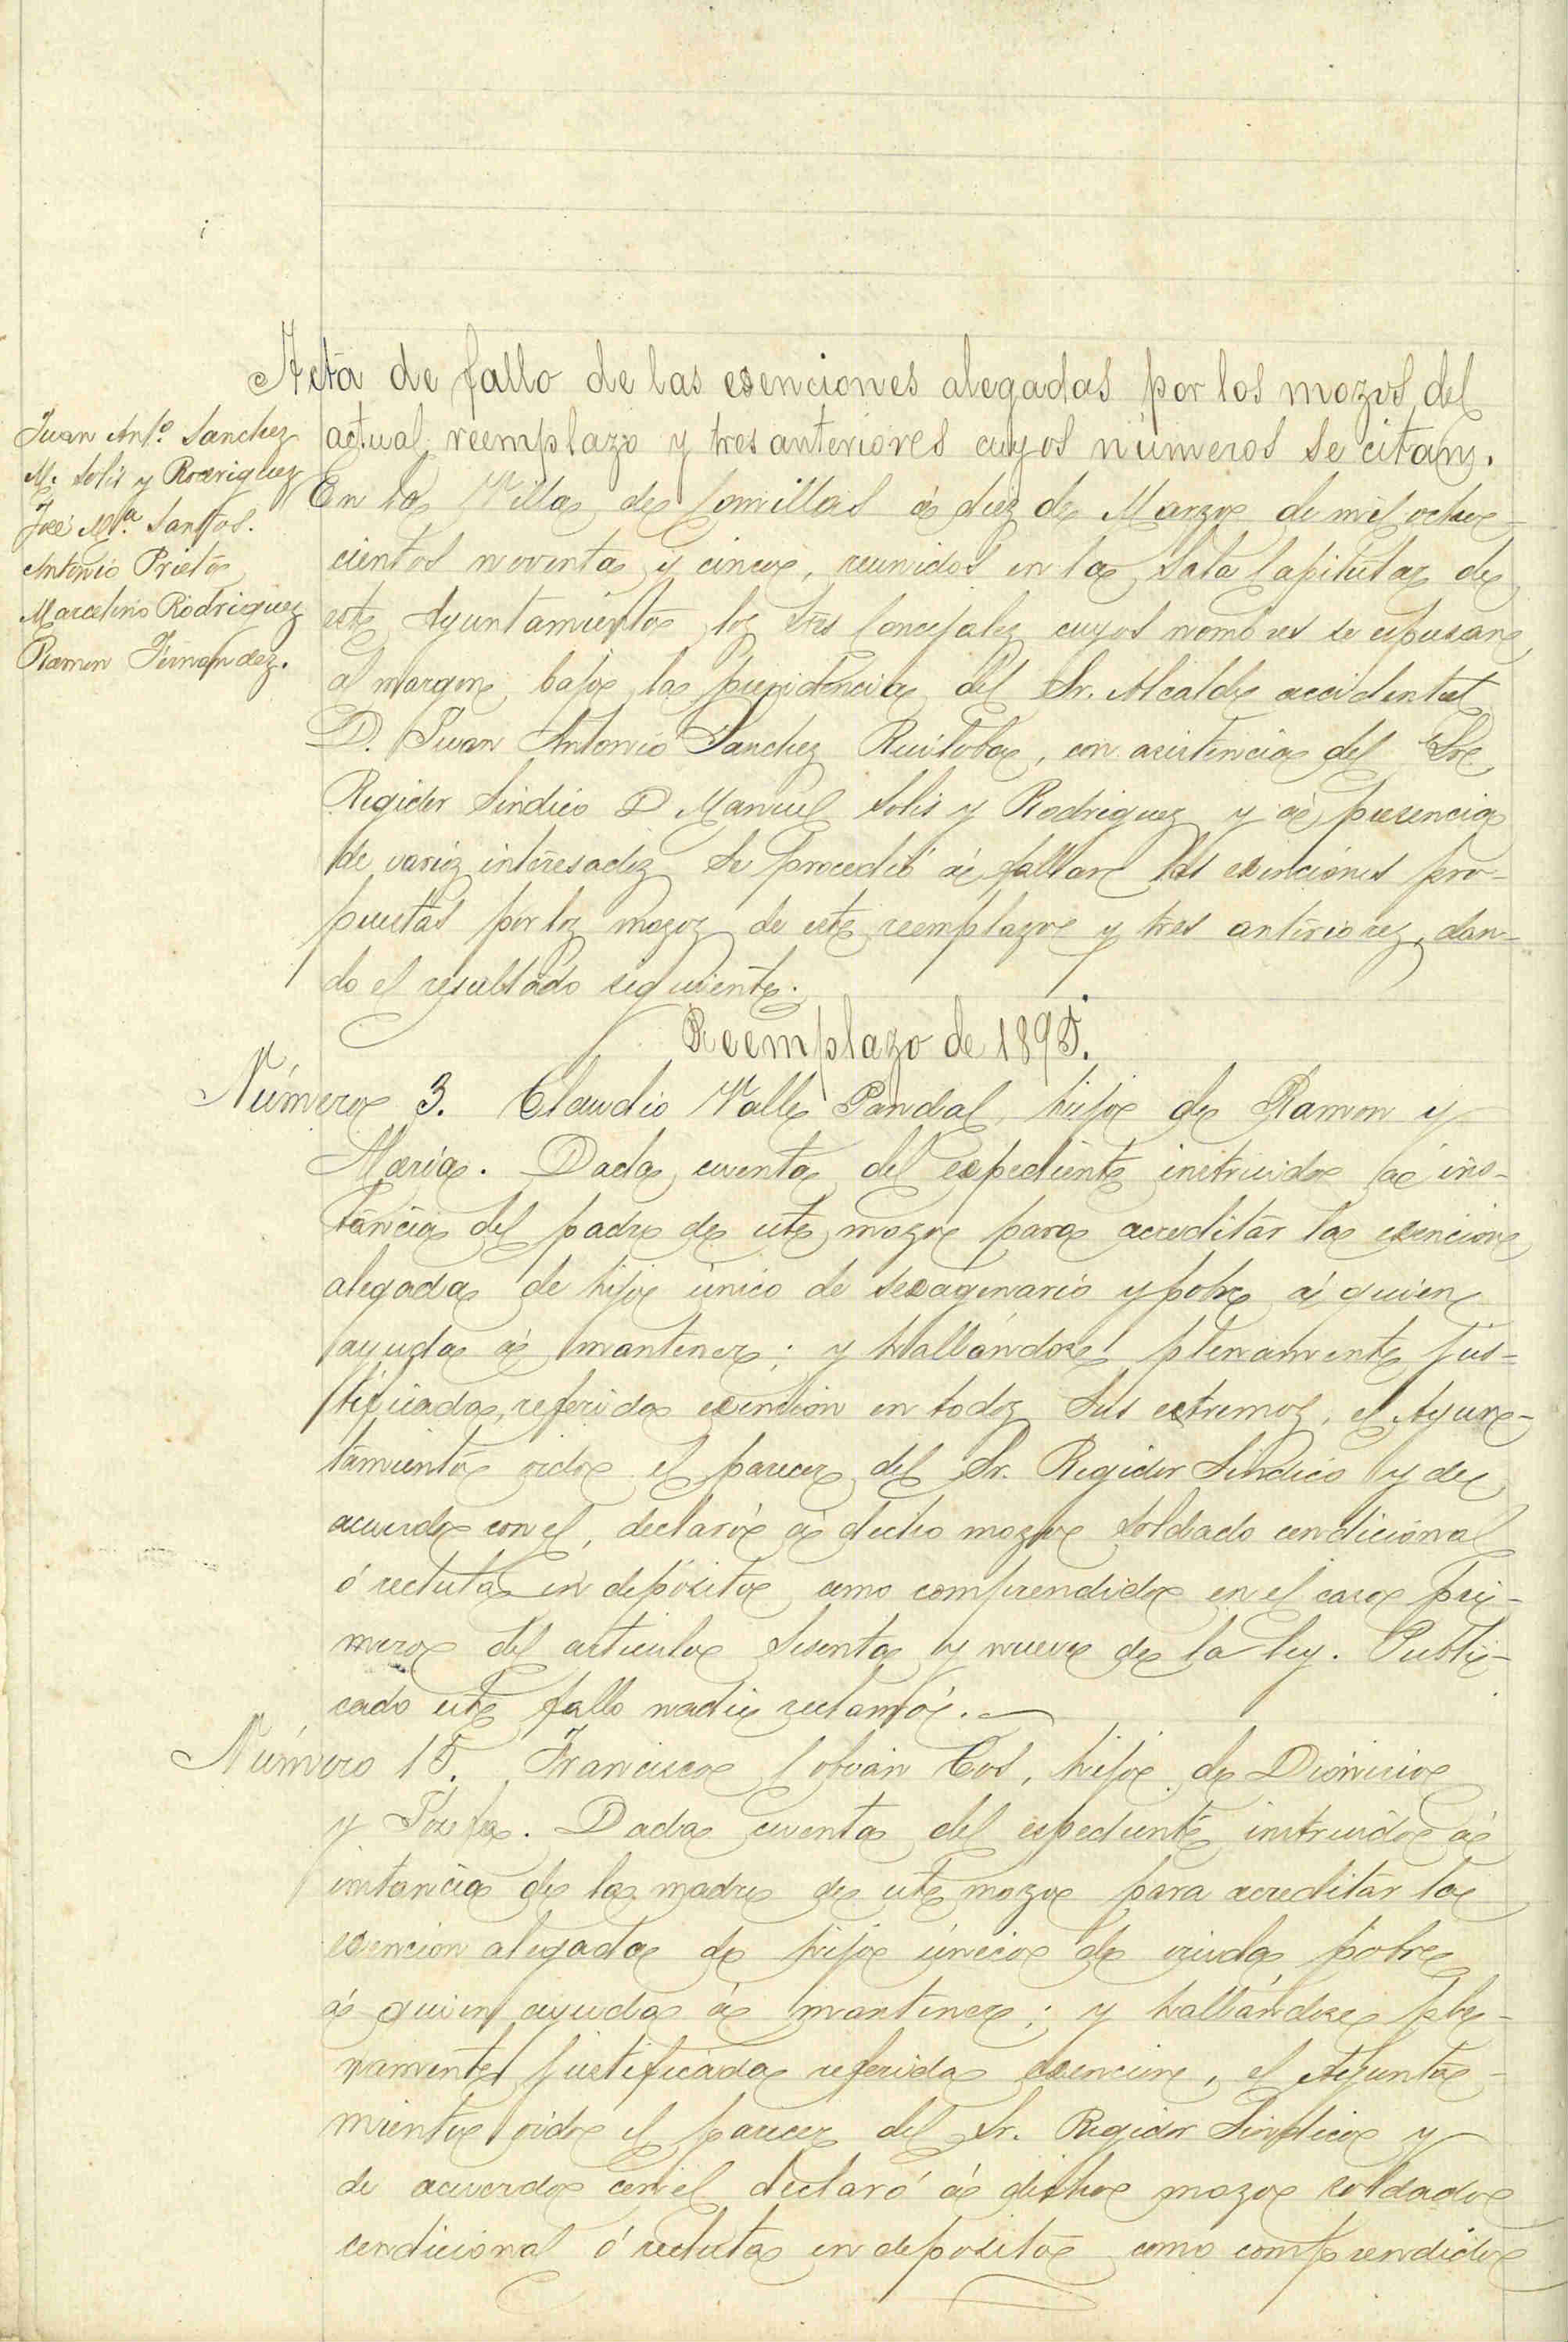 Acta de fallo de las esenciones alegadas por los mozos del
actual reemplazo y tres anteriores cuyos números se citan.
Juan Ant.º Sanchez
M. Solis y Rodriguez
José M.ª Santos.
Antonio Prieto
Marcelino Rodriguez
Ramon Fernandez.
En la Villa de Comillas á diez de Marzo de mil ocho-
cientos noventa y cinco, reunidos en la Sala Capitular de
este Ayuntamiento los Sres Concejales cuyos nombres se espresan
al margen, bajo la presidencia del Sr. Alcalde accidental
D. Juan Antonio Sanchez Ruiloba, con asistencia del Sr
Regidor Síndico D Manuel Solis y Rodriguez y á presencia
de varios interesados se procedió á fallar las esenciones pro-
puestas por los mozos de este reemplazo y tres anteriores, dan-
do el resultado siguiente.
Reemplazo de 1895.
Número 3. Claudio Valle Pandal, hijo de Ramon y
María. Dada cuenta del espediente instruido á ins-
tancia del padre de este mozo para acreditar la esencion
alegada de hijo único de sexagenario y pobre á quien
ayuda á mantener; y hallándose plenamente jus-
tificada, referida esención en todos sus estremos, el Ayun-
tamiento oido el parecer del Sr. Regidor Síndico y de
acuerdo con el, declaró á dicho mozo soldado condicional
ó recluta en depósito como comprendido en el caso pri-
mero del artículo sesenta y nueve de la ley. Publi-
cado este fallo nadie reclamó.
Número 15. Francisco Cobián Cos, hijo de Dionisio
y Josefa. Dada cuenta del espediente instruido á
instancia de la madre de este mozo para acreditar la
esencion alegada de hijo único de viuda pobre
á quien ayuda á mantener; y hallándose ple-
namente justificada referida esencion, el Ayunta-
miento oido el parecer del Sr. Regidor Síndico y
de acuerdo con el declaró á dicho mozo soldado
condicional ó recluta en depósito como comprendido